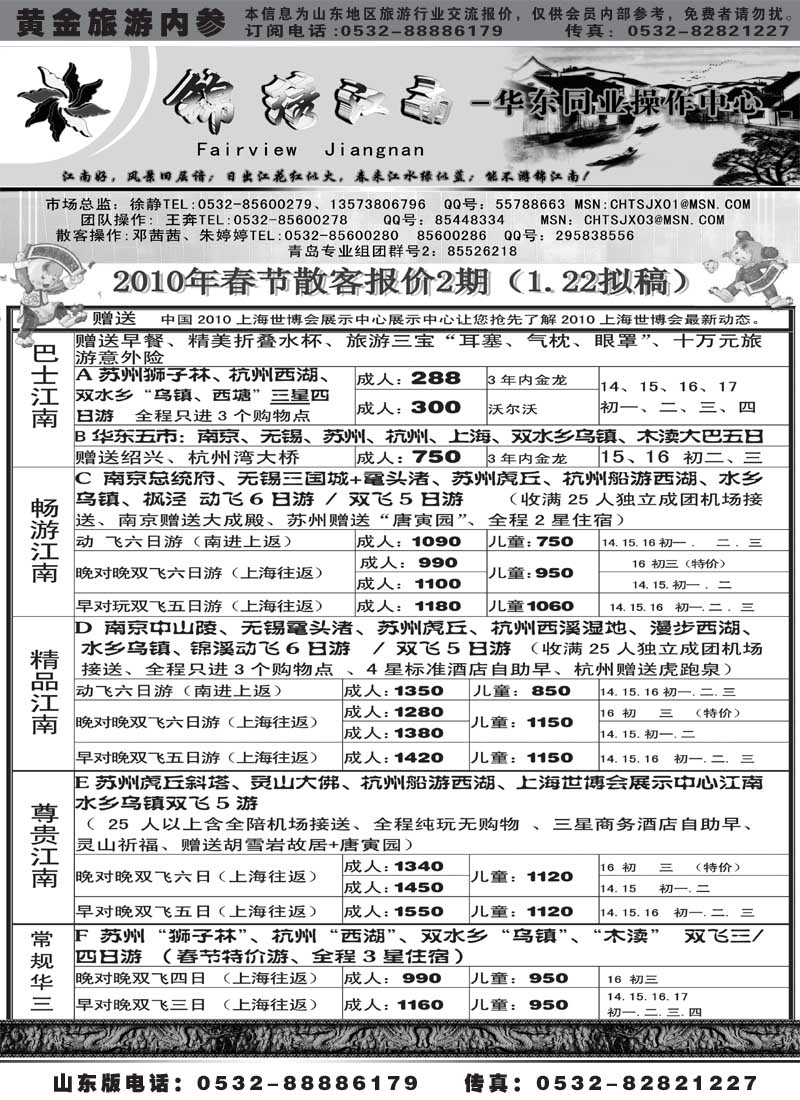 黄金旅游内参
本信息为山东地区旅游行业交流报价，仅供会员内部参考，免费者请勿扰。
订阅电话:0532-88886179 传真: 0532-82821227
锦绣江南-华东同业操作中心
Fairview Jiangnan
江南好，风景旧层谙；日出江花红似火，春来江水绿似蓝；能不游锦江南！
市场总监：徐静TEL:0532-85600279、13573806796 QQ号：55788663 MSN:CHTSJX01@MSN.COM
团队操作：王奔TEL:0532-85600278 QQ号：85448334 MSN：CHTSJX03@MSN.COM
散客操作:邓茜茜、朱婷婷TEL:0532-85600280 85600286 QQ号：295838556
青岛专业组团群号2：85526218
2010年春节散客报价2期（1.22拟稿）
赠送 中国2010上海世博会展示中心展示中心让您抢先了解2010上海世博会最新动态。
巴士江南
赠送早餐、精美折叠水杯、旅游三宝“耳塞、气枕、眼罩”、十万元旅
游意外险
A 苏州狮子林、杭州西湖、
双水乡“乌镇、西塘”三星四
日游 全程只进3个购物点
成人：288 3年内金龙
成人：300 沃尔沃
14、15、16、17
初一、二、三、四
B 华东五市：南京、无锡、苏州、杭州、上海、双水乡乌镇、木渎大巴五日
赠送绍兴、杭州湾大桥 成人：750 3年内金龙 15、16 初二、三
畅游江南
C 南京总统府、无锡三国城+鼋头渚、苏州虎丘、杭州船游西湖、水乡
乌镇、枫泾 动飞6日游 / 双飞5日游 （收满25人独立成团机场接
送、南京赠送大成殿、苏州赠送“唐寅园”、全程2星住宿）
动 飞六日游（南进上返） 成人：1090 儿童：750 14.15.16初一. 二.三
晚对晚双飞六日游（上海往返） 成人：990 儿童：950 16 初三（特价）
成人：1100 14.15.初一.二
早对玩双飞五日游（上海往返） 成人：1180 儿童1060 14.15.16 初一.二.三
精品江南
D 南京中山陵、无锡鼋头渚、苏州虎丘、杭州西溪湿地、漫步西湖、
水乡乌镇、锦溪动飞6日游 / 双飞5日游（收满25人独立成团机场
接送、全程只进3个购物点 、4星标准酒店自助早、杭州赠送虎跑泉）
动飞六日游（南进上返） 成人：1350 儿童：850 14.15.16初一.二.三
晚对晚双飞六日游（上海往返） 成人：1280 儿童：1150 16 初 三 （特价）
成人：1380 14.15.初一.二
早对晚双飞五日游（上海往返） 成人：1420 儿童：1150 14.15.16 初一.二. 三
尊贵江南
E 苏州虎丘斜塔、灵山大佛、杭州船游西湖、上海世博会展示中心江南
水乡乌镇双飞5游
（ 25 人以上含全陪机场接送、全程纯玩无购物 、三星商务酒店自助早、
灵山祈福、赠送胡雪岩故居+唐寅园）
晚对晚双飞六日（上海往返） 成人：1340 儿童：1120 16 初 三 （特价）
成人：1450 14.15 初一.二
早对晚双飞五日（上海往返） 成人：1550 儿童：1120 14.15.16 初一.二. 三
常规华三
F 苏州“狮子林”、杭州“西湖”、双水乡“乌镇”、“木渎” 双飞三/
四日游 （春节特价游、全程3星住宿）
晚对晚双飞四日 （上海往返） 成人：990 儿童：950 16 初三
早对晚双飞三日 （上海往返） 成人：1160 儿童：950 14.15.16.17
初一.二.三.四
山东版电话：0532-88886179 传真：0532-82821227